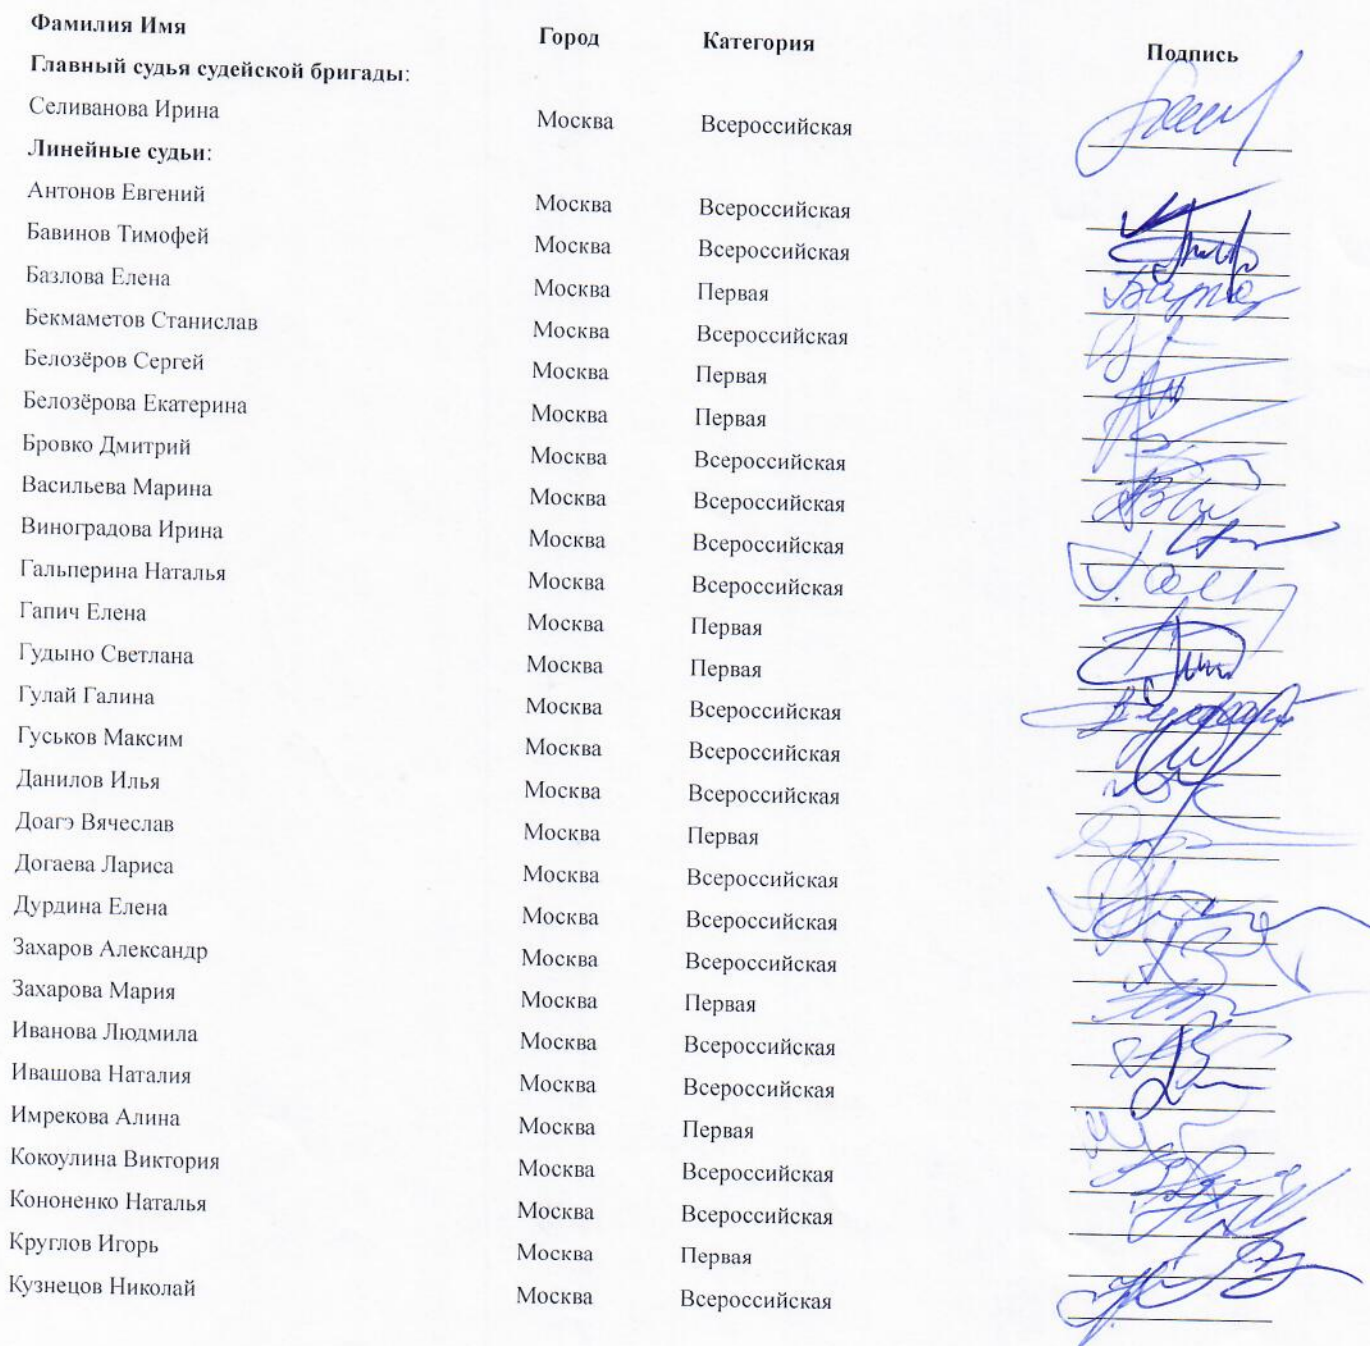 Фамилия Имя Город Категория Подпись
Главный судья судейской бригады:
Селиванова Ирина Москва Всероссийская
Линейные судьи:
Антонов Евгений Москва Всероссийская
Бавинов Тимофей Москва Всероссийская
Базлова Елена Москва Первая
Бекмаметов Станислав Москва Всероссийская
Белозёров Сергей Москва Первая
Белозёрова Екатерина Москва Первая
Бровко Дмитрий Москва Всероссийская
Васильева Марина Москва Всероссийская
Виноградова Ирина Москва Всероссийская
Гальперина Наталья Москва Всероссийская
Гапич Елена Москва Первая
Гудыно Светлана Москва Первая
Гулай Галина Москва Всероссийская
Гуськов Максим Москва Всероссийская
Данилов Илья Москва Всероссийская
Доагэ Вячеслав Москва Первая
Догаева Лариса Москва Всероссийская
Дурдина Елена Москва Всероссийская
Захаров Александр Москва Всероссийская
Захарова Мария Москва Первая
Иванова Людмила Москва Всероссийская
Ивашова Наталия Москва Всероссийская
Имрекова Алина Москва Первая
Кокоулина Виктория Москва Всероссийская
Кононенко Наталья Москва Всероссийская
Круглов Игорь Москва Первая
Кузнецов Николай Москва Всероссийская